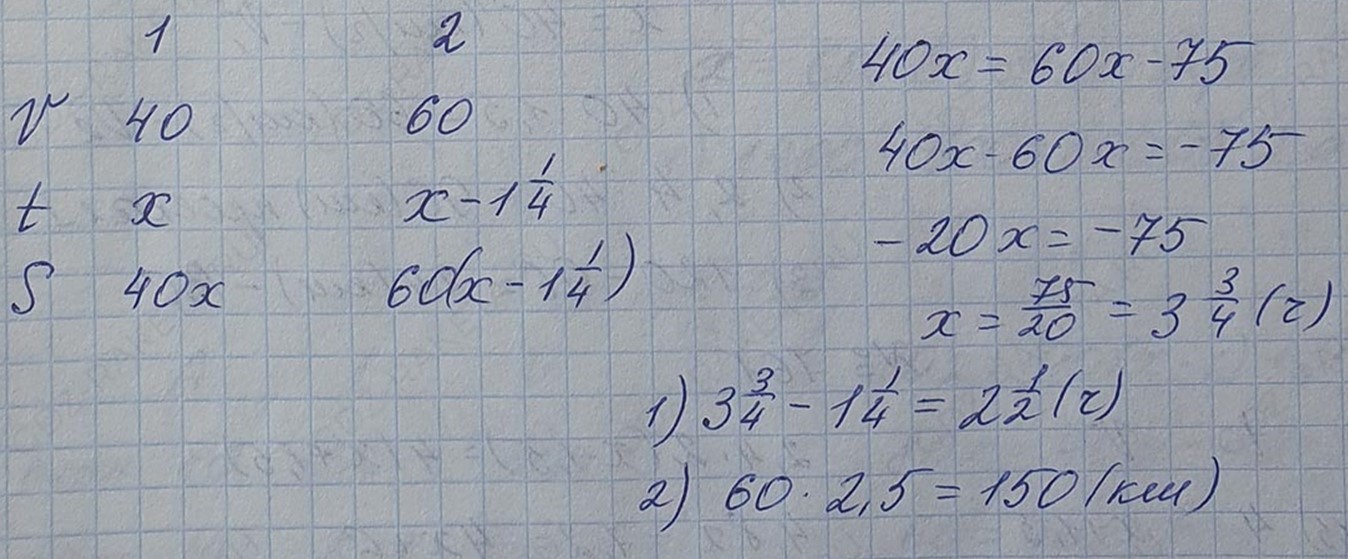 1 2
V 40 60
t x x - 1 1/4
S 40x 60(x - 1 1/4)
40x = 60x - 75
40x - 60x = -75
-20x = -75
x = 75/20 = 3 3/4 (ч)
1) 3 3/4 - 1 1/4 = 2 1/2 (ч)
2) 60 · 2,5 = 150 (км)